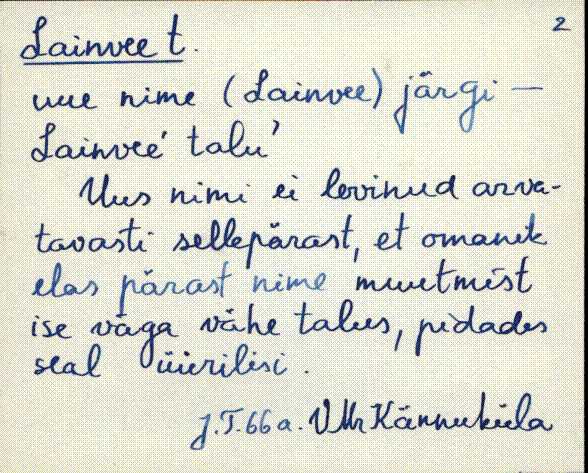 2
Lainvee t.
uue nime (Lainvee) järgi —
Lainvee' talu'
Uus nimi ei levinud arva-
tavasti sellepärast, et omanik
elas pärast nime muutmist
ise väga vähe talus, pidades
seal üürilisi.
J.T. 66 a. VMr Kännuküla